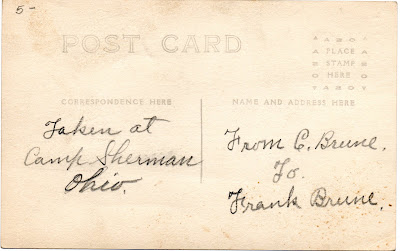 5-
POST CARD
AZO
PLACE
STAMP
HERE
CORRESPONDENCE HERE
NAME AND ADDRESS HERE
Taken at
Camp Sherman
Ohio.
From C. Brune.
To.
Frank Brune.